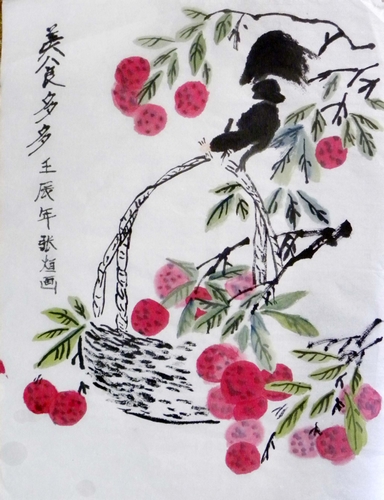 美食多多 壬辰年 张烜画